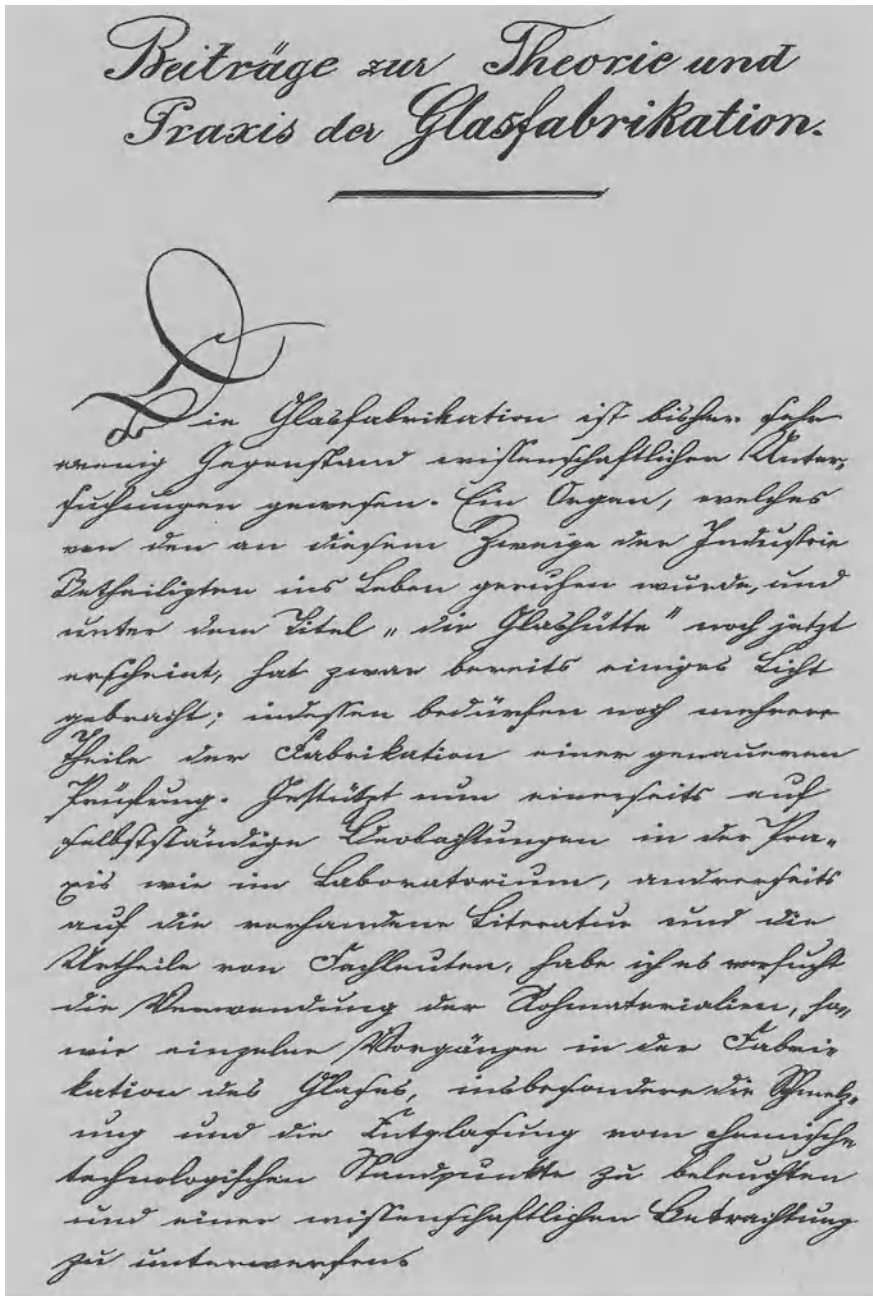 Beiträge zur Theorie und
Praxis der Glasfabrikation.
Die Glasfabrikation ist bisher sehr
wenig Gegenstand wissenschaftlicher Unter-
suchungen gewesen. Ein Organ, welches
von den an diesem Zweige der Industrie
Betheiligten ins Leben gerufen wurde, und
unter dem Titel „die Glashütte" noch jetzt
erscheint, hat zwar bereits einiges Licht
gebracht; indessen bedürfen noch mehrere
Theile der Fabrikation einer genaueren
Prüfung. Gestützt nun einerseits auf
selbstständige Beobachtungen in der Pra-
xis wie im Laboratorium, andrerseits
auf die vorhandene Literatur und die
Urtheile von Fachleuten, habe ich es versucht
die Verwendung der Rohmaterialien, so-
wie einzelne Vorgänge in der Fabri-
kation des Glases, insbesondere die Schmelz-
ung und die Entglasung vom chemisch-
technologischen Standpunkte zu beleuchten
und einer wissenschaftlichen Betrachtung
zu unterwerfen.